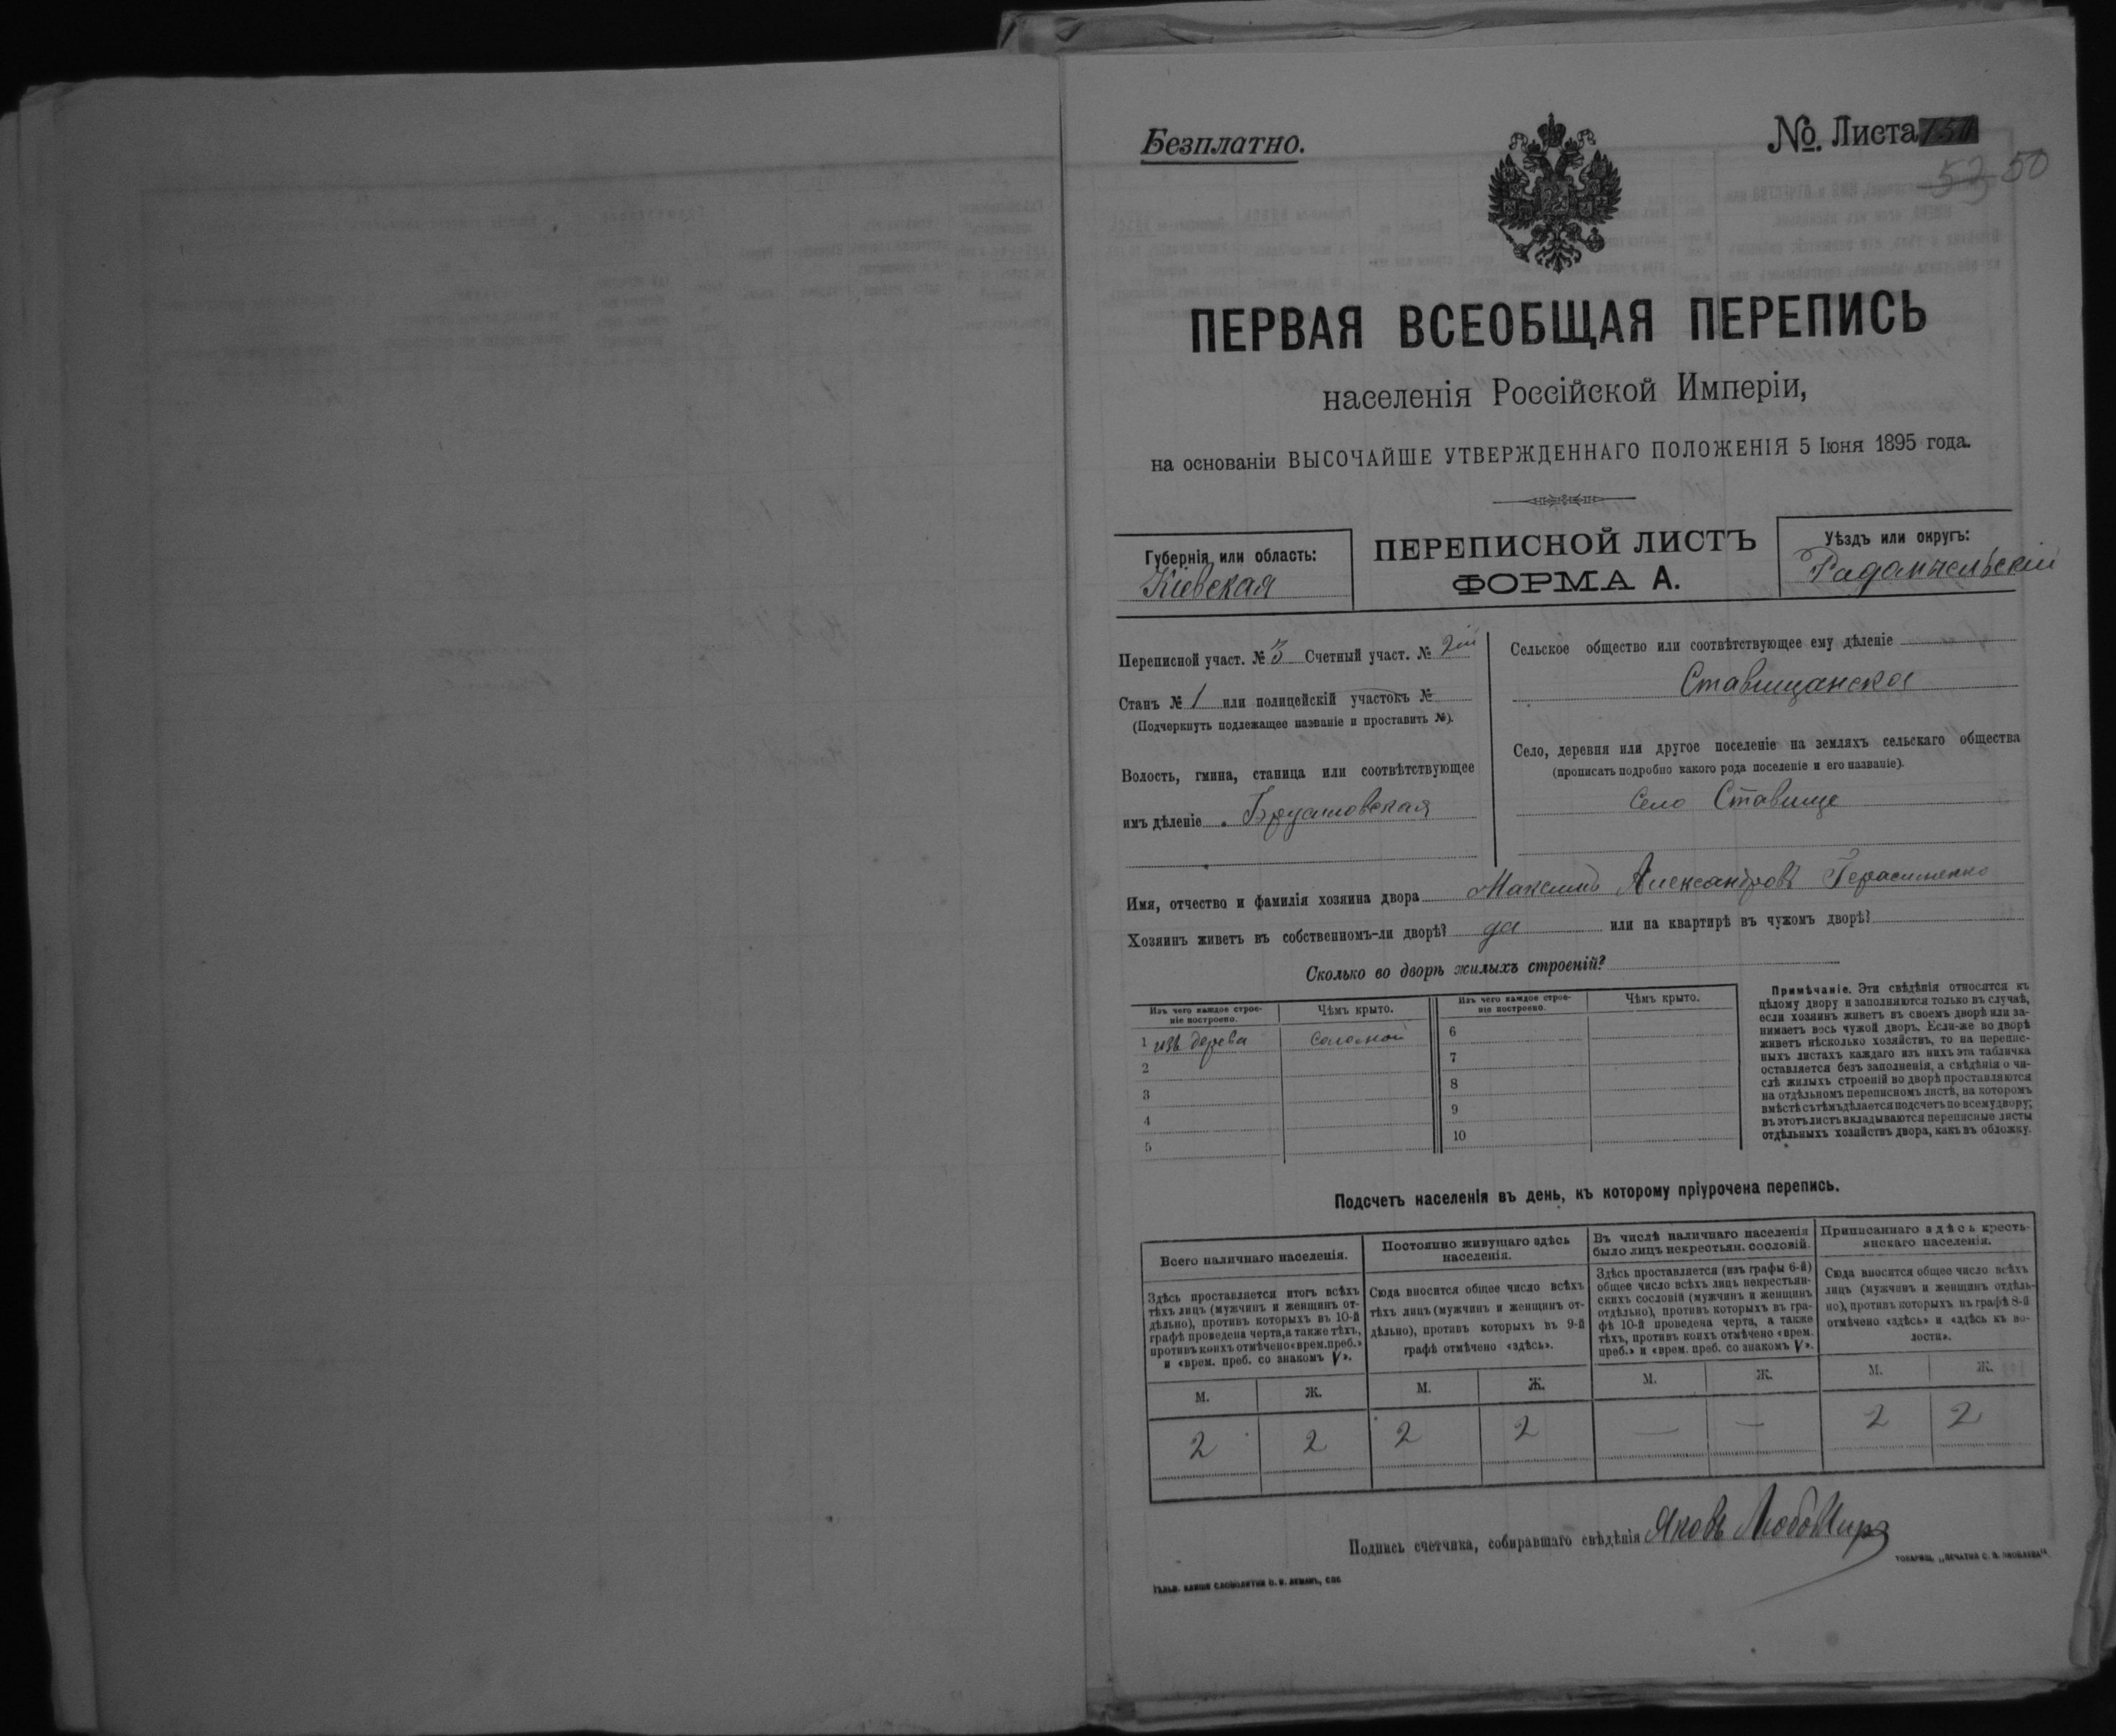 Безплатно.
№. Листа
53 50
ПЕРВАЯ ВСЕОБЩАЯ ПЕРЕПИСЬ
населенія Россійской Имперіи,
на основаніи ВЫСОЧАЙШЕ УТВЕРЖДЕННАГО ПОЛОЖЕНІЯ 5 Іюня 1895 года.
Губернія или область:
Кіевская
ПЕРЕПИСНОЙ ЛИСТЪ
ФОРМА А.
Уѣздъ или округъ:
Радомысльскій
Переписной участ. № 3 Счетный участ. № 2ой
Станъ № 1 или полицейскій участокъ №
(Подчеркнуть подлежащее названіе и проставить №).
Волость, гмина, станица или соотвѣтствующее
имъ дѣленіе Брусиловская
Сельское общество или соотвѣтствующее ему дѣленіе
Ставищанское
Село, деревня или другое поселеніе на земляхъ сельскаго общества
(прописать подробно какого рода поселеніе и его названіе).
Село Ставище
Имя, отчество и фамилія хозяина двора Максимъ Александровъ Герасименко
Хозяинъ живетъ въ собственномъ-ли дворѣ? да или на квартирѣ въ чужомъ дворѣ?
Сколько во дворѣ жилыхъ строеній?
Изъ чего каждое строе-
ніе построено.
Чѣмъ крыто.
1 изъ дерева соломой
2
3
4
5
Изъ чего каждое строе-
ніе построено.
Чѣмъ крыто.
6
7
8
9
10
Примѣчаніе. Эти свѣдѣнія относятся къ
цѣлому двору и заполняются только въ случаѣ,
если хозяинъ живетъ въ своемъ дворѣ или за-
нимаетъ весь чужой дворъ. Если-же во дворѣ
живетъ нѣсколько хозяйствъ, то на перепис-
ныхъ листахъ каждаго изъ нихъ эта табличка
оставляется безъ заполненія, а свѣдѣнія о чи-
слѣ жилыхъ строеній во дворѣ проставляются
на отдѣльномъ переписномъ листѣ, на которомъ
вмѣстѣ съ тѣмъ дѣлается подсчетъ по всему двору;
въ этотъ листъ вкладываются переписные листы
отдѣльныхъ хозяйствъ двора, какъ въ обложку.
Подсчетъ населенія въ день, къ которому пріурочена перепись.
Всего наличнаго населенія.
Здѣсь проставляется итогъ всѣхъ
тѣхъ лицъ (мужчинъ и женщинъ от-
дѣльно), противъ которыхъ въ 10-й
графѣ проведена черта, а также тѣхъ,
противъ коихъ отмѣчено «врем. преб.»
и «врем. преб. со знакомъ V».
М. Ж.
2 2
Постоянно живущаго здѣсь
населенія.
Сюда вносится общее число всѣхъ
тѣхъ лицъ (мужчинъ и женщинъ от-
дѣльно), противъ которыхъ въ 9-й
графѣ отмѣчено «здѣсь».
М. Ж.
2 2
Въ числѣ наличнаго населенія
было лицъ некрестьян. сословій.
Здѣсь проставляется (изъ графы 6-й)
общее число всѣхъ лицъ некрестьян-
скихъ сословій (мужчинъ и женщинъ
отдѣльно), противъ которыхъ въ гра-
фѣ 10-й проведена черта, а также
тѣхъ, противъ коихъ отмѣчено «врем.
преб.» и «врем. преб. со знакомъ V».
М. Ж.
— —
Приписаннаго здѣсь кресть-
янскаго населенія.
Сюда вносится общее число всѣхъ
лицъ (мужчинъ и женщинъ отдѣль-
но), противъ которыхъ въ графѣ 8-й
отмѣчено «здѣсь» и «здѣсь въ во-
лости».
М. Ж.
2 2
Подпись счетчика, собиравшаго свѣдѣнія Яковъ Любомиръ
ТОВАРИЩ. „ПЕЧАТНЯ С. П. ЯКОВЛЕВА“.